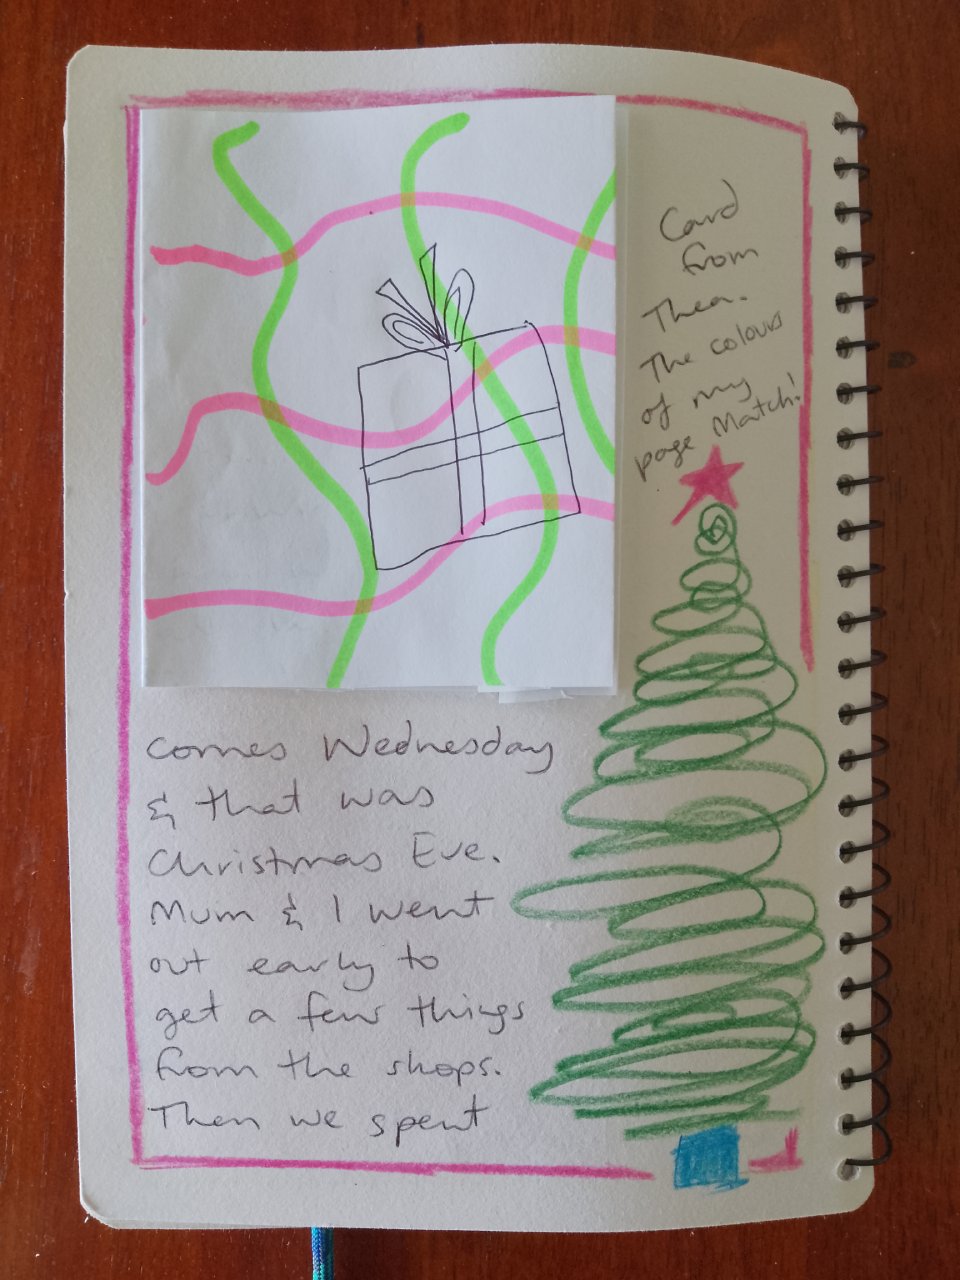 Card
from
Thea.
The colours
of my
page Match!
comes Wednesday
& that was
Christmas Eve.
Mum & I went
out early to
get a few things
from the shops.
Then we spent